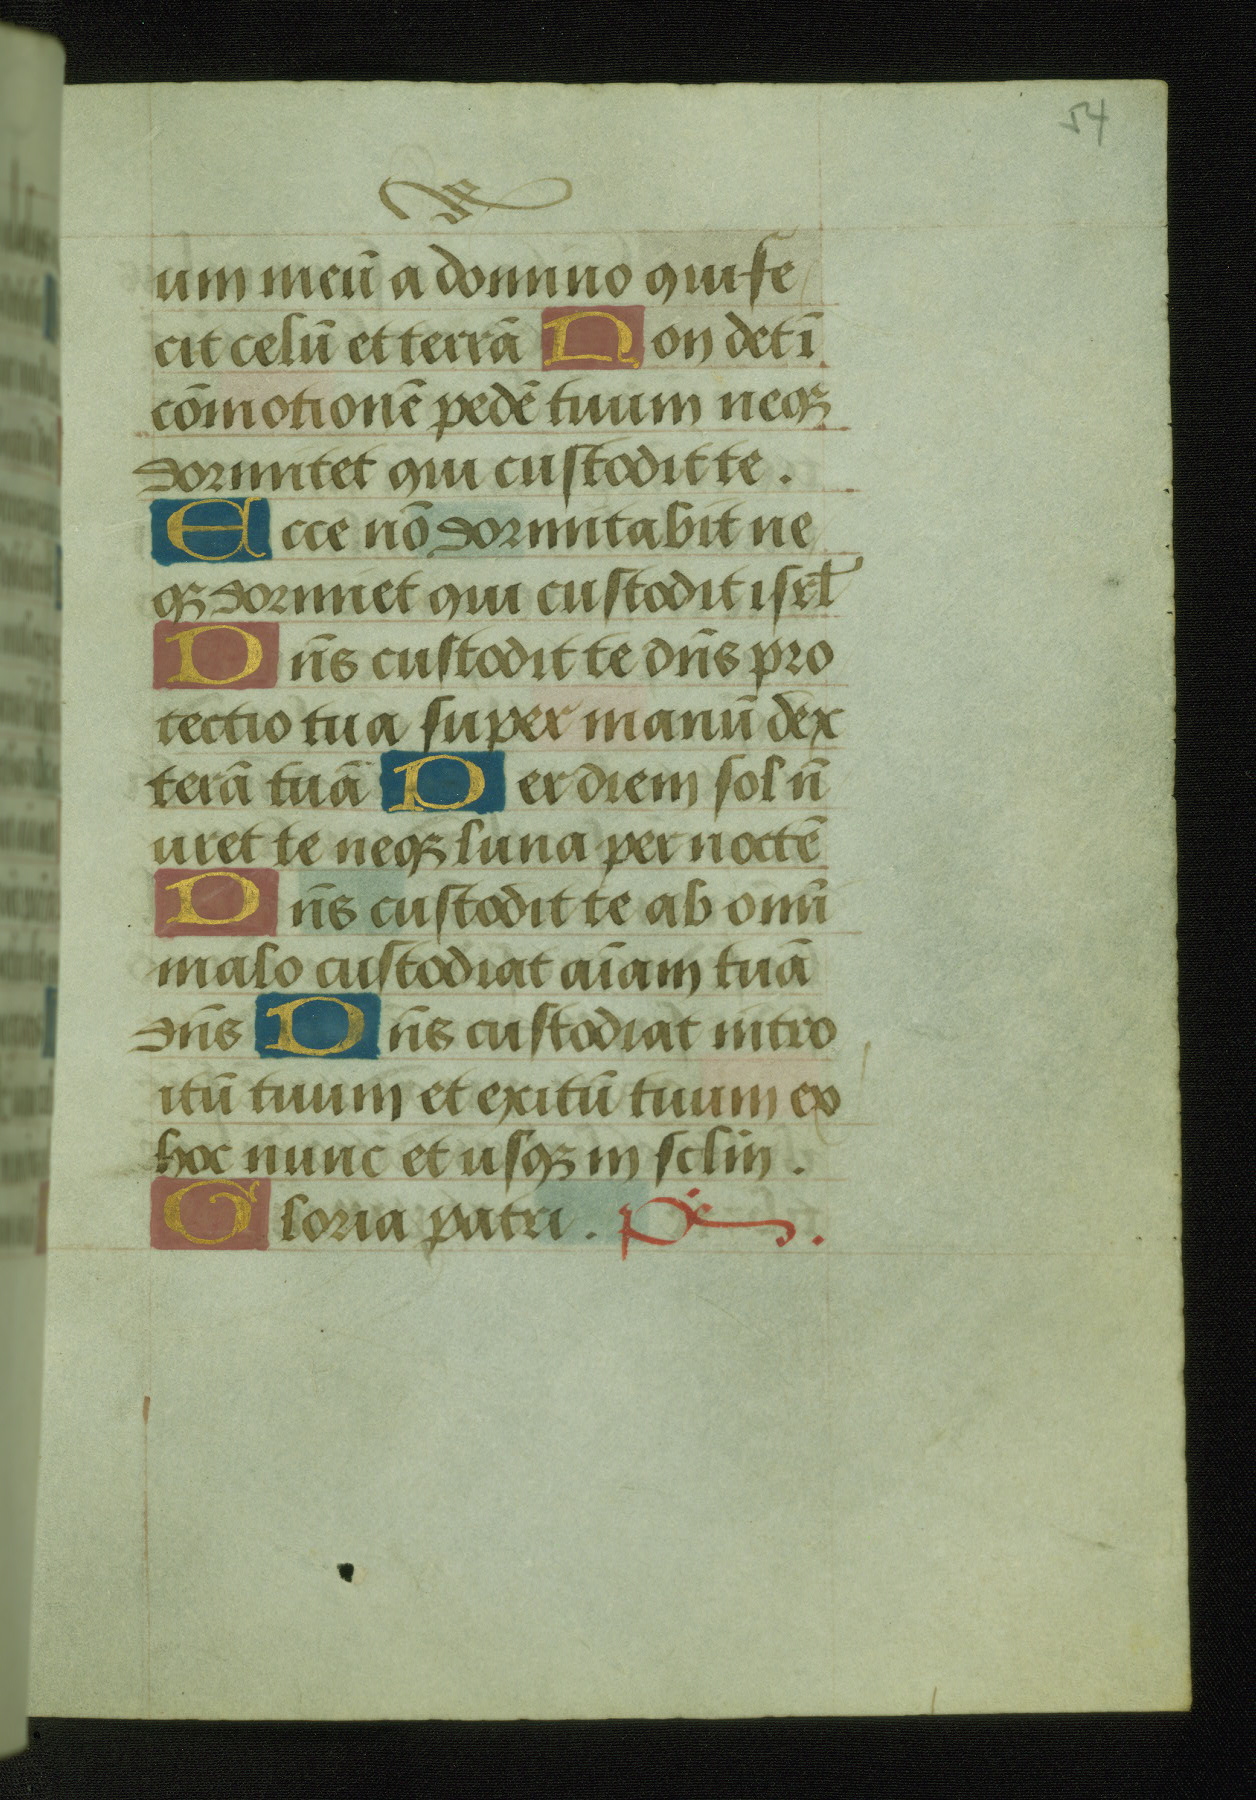 54
um meū a domino qui fe
cit celū et terrā Non det ī
cōmotionē pedē tuum neqꝫ
dormitet qui custodit te .
Ecce nō dormitabit ne
qꝫ dormiet qui custodit isrl̄
Dn̄s custodit te dn̄s pro
tectio tua super manū dex
terā tuā Per diem sol n̄
uret te neqꝫ luna per noctē
Dn̄s custodit te ab om̄i
malo custodiat aīam tuā
dn̄s Dn̄s custodiat intro
itū tuum et exitū tuum ex
hoc nunc et usqꝫ in sclm̄ .
Gloria patri . Ps .